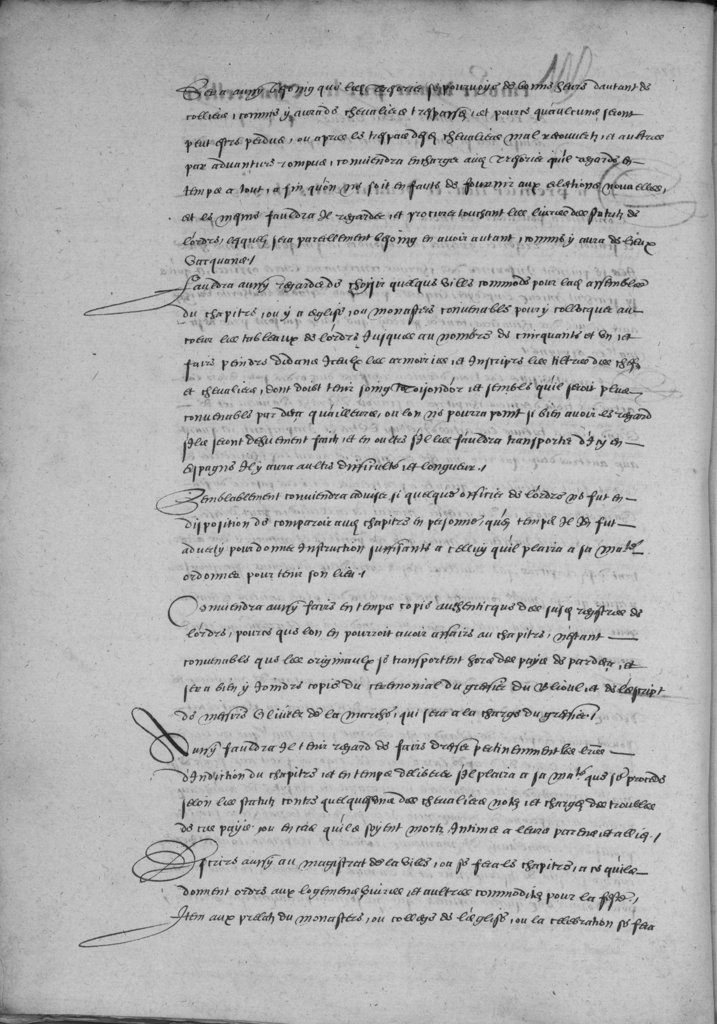 Sera aussy besoing que led. tresorier se pourvoye de bonne heure dautant de
colliers, comme y aura de chevaliers trespassez, et pource quaulcuns seront
peut estre perdus, ou apres le trespas desd. chevaliers mal recouvertz, et aultres
par advanture rompus, conviendra encharger aud. tresorier qu'il regarde en
temps a tout, afin qu'on ne soit en faute de fournir aux elections nouvelles,
et le mesme fauldra Il regarder, et procurer touchant les livres des statutz de
l'ordre, desquelz sera pareillement besoing en avoir autant, comme y aura de lieux
vacquans.
Fauldra aussy regarder de choisir quelque ville commode pour lad. assemblee
du chapitre, ou y a eglise, ou monastere convenables pour y collocquer au
coeur les tableaux de l'ordre Jusques au nombre de cincquante et un, et
faire peindre dedans Iceulx les armoiries, et Inscripre les tiltres des chefz
et chevaliers, dont doibt tenir soing Toison d'or, et semble qu'il seroit plus
convenable par deca qu'ailleurs, ou lon ne pourra point si bien avoir le regard
s'Ilz seront deuement faitz, et en oultre s'Il les fauldra transporter d'Icy en
espagne Il y aura aultre difficulté, et longueur.
Semblablement conviendra adviser si quelque officier de l'ordre ne fut en
disposition de comparoir aud. chapitre en personne, qu'en temps Il en fut
adverty pour donner Instruction suffisante a celluy qu'il plaira a sa Mate.
ordonner pour tenir son lieu.
Conviendra aussy faire en temps copie authenticque des susd. registres de
l'ordre, pource que lon en pourroit avoir affaire au chapitre, n'estant
convenable que les originaulx se transportent hors des pays de pardeca, et
sera bien y Joindre copie du ceremonial du greffier du Blioul, et de l'escript
de messire Olivier de la Marche, qui sera a la charge du greffier.
Aussy fauldra Il tenir regard de faire dresser pertinemment les lres
d'Indiction du chapitre, et en temps deliberer s'Il plaira a sa Mate. que se procede
selon les statutz contre quelques uns des chevaliers notez, et chargez des troubles
de ces pays, ou en cas qu'ilz soyent mortz, Intimer a leurs parens et alliez.
Descrire aussy au magistrat de la ville, ou se fera le chapitre, a ce qu'ilz
donnent ordre aux logemens, vivres, et aultres commoditez pour la feste,
Item aux prelatz du monastere, ou college de l'eglise, ou la celebration se fera